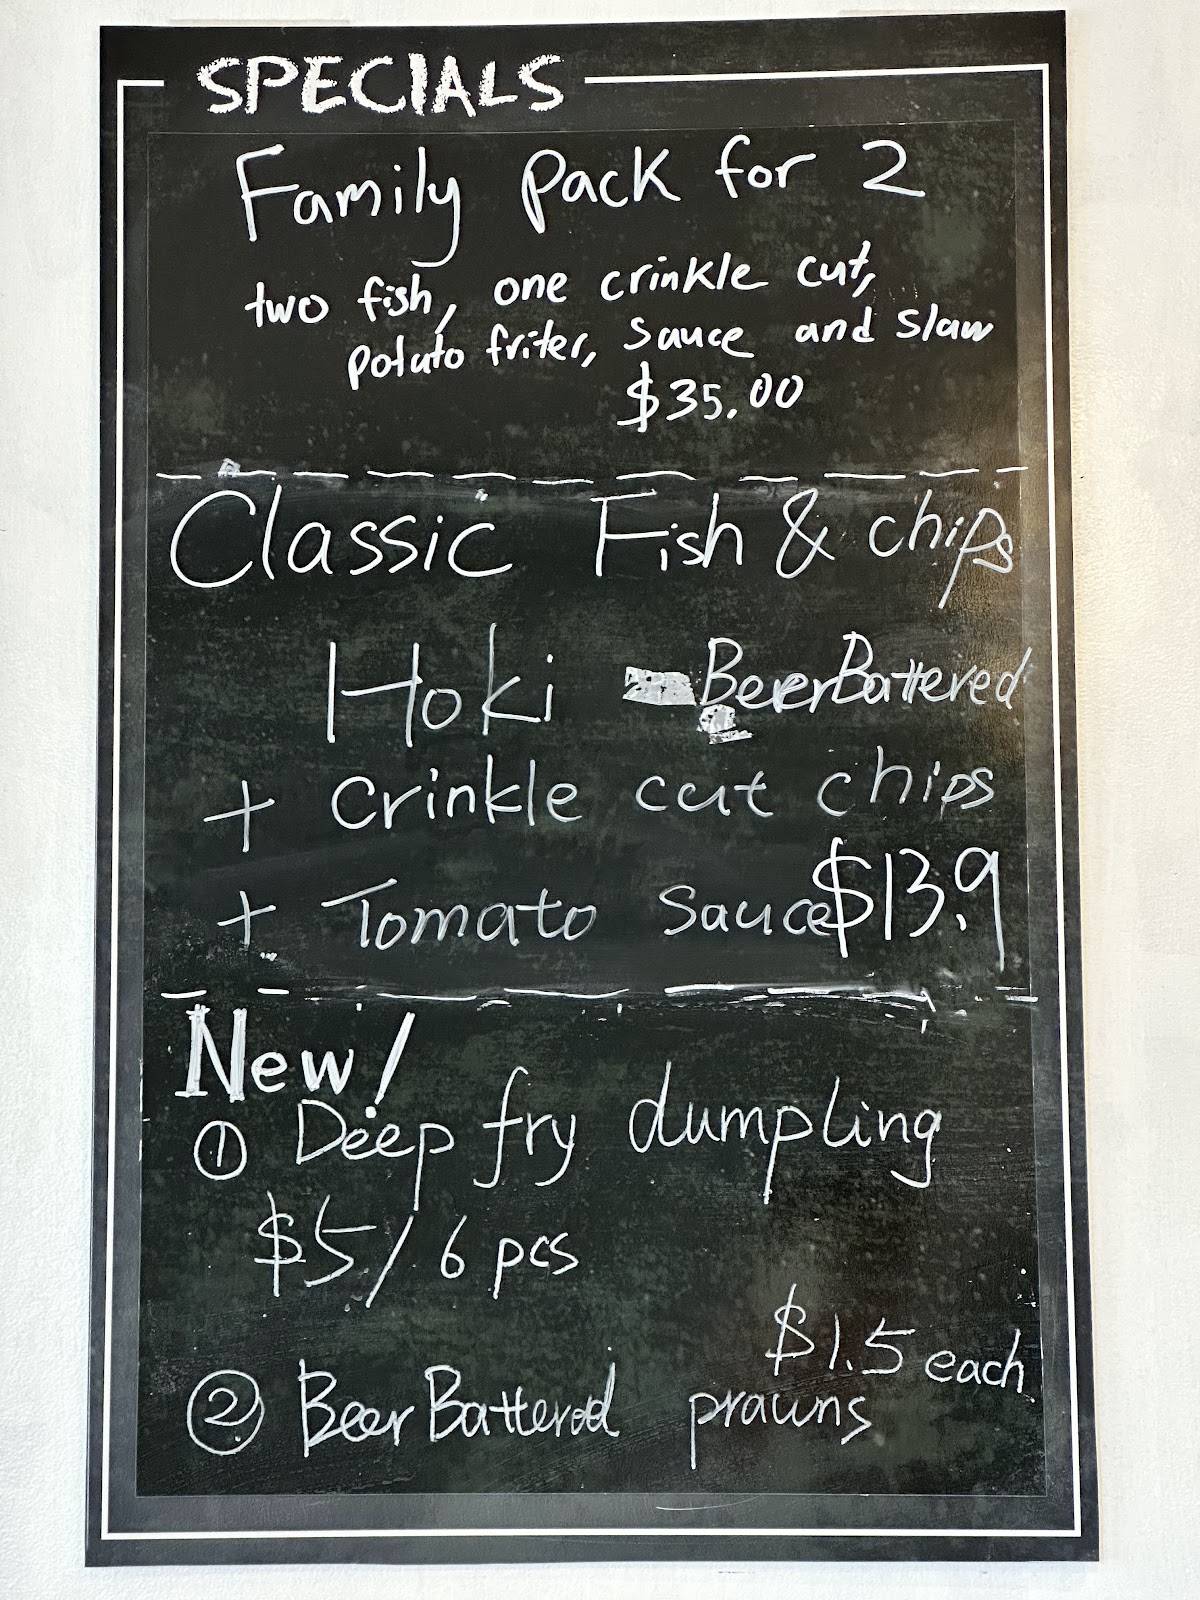 SPECIALS
Family Pack for 2
two fish, one crinkle cut,
potato friter, sauce and slaw
$35.00
Classic Fish & chips
Hoki BeerBattered
+ Crinkle cut chips
+ Tomato Sauce $13.9
New!
① Deep fry dumpling
$5/6 pcs
$1.5 each
② BeerBattered prawns